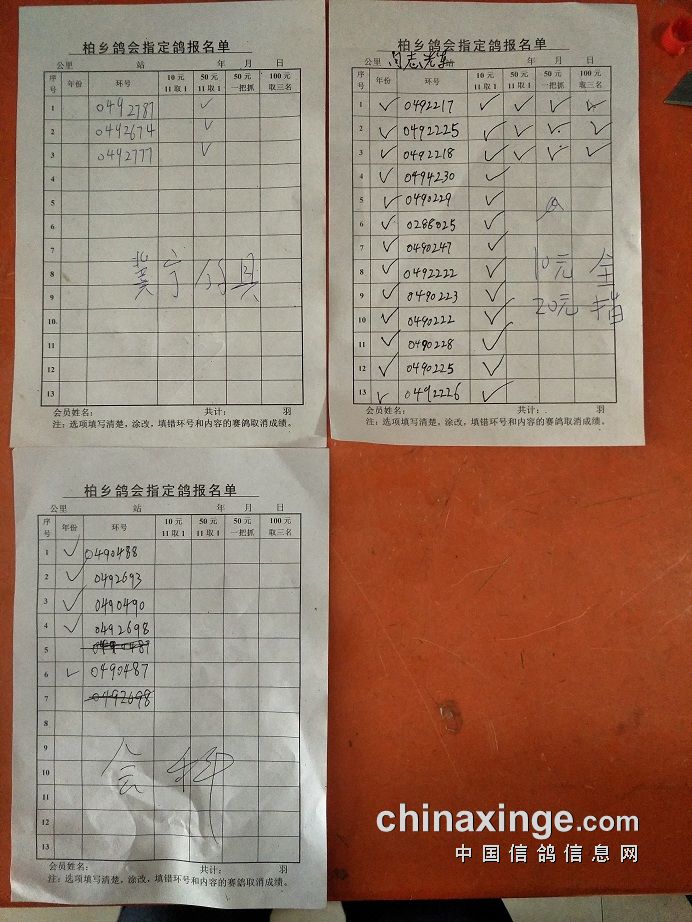 柏乡鸽会指定鸽报名单
公里 站 年 月 日
序号 年份 环号 10元11取1 50元11取1 50元一把抓 100元取三名
1 0492787 ✓
2 0492674 ✓
3 0492777 ✓
4
5
6
7
8
9
10
11
12
13
冀宁
会员姓名: 共计: 羽
注:选项填写清楚,涂改,填错环号和内容的赛鸽取消成绩。
柏乡鸽会指定鸽报名单
公里 年 月 日
序号 年份 环号 10元11取1 50元11取1 50元一把抓 100元取三名
1 ✓ 0492217 ✓ ✓ ✓ ✓
2 ✓ 0492225 ✓ ✓ ✓ ✓
3 ✓ 0492218 ✓ ✓ ✓ ✓
4 ✓ 0494230 ✓
5 ✓ 0490229 ✓
6 ✓ 0288025 ✓
7 ✓ 0490247 ✓
8 ✓ 0492222 ✓
9 ✓ 0490223 ✓
10 ✓ 0490222 ✓
11 ✓ 0490228 ✓
12 ✓ 0490225 ✓
13 ✓ 0492226 ✓
10元 全
20元
会员姓名: 共计: 羽
注:选项填写清楚,涂改,填错环号和内容的赛鸽取消成绩。
柏乡鸽会指定鸽报名单
公里 站 年 月 日
序号 年份 环号 10元11取1 50元11取1 50元一把抓 100元取三名
1 ✓ 0490488
2 ✓ 0492693
3 ✓ 0490490
4 ✓ 0492698
5 0490487
6 ✓ 0490487
7 0492698
8
9
10
11
12
13
会员姓名: 共计: 羽
注:选项填写清楚,涂改,填错环号和内容的赛鸽取消成绩。
chinaxinge.com
中国信鸽信息网